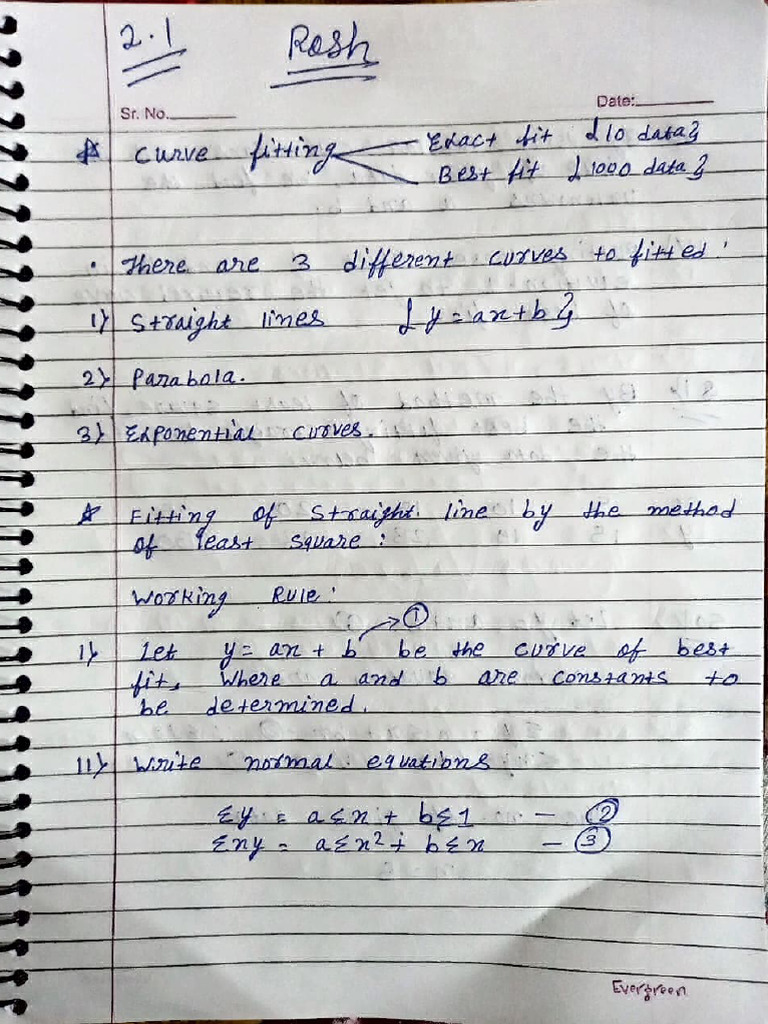 2.1 Rosh
Sr. No.
Date:
curve fitting Exact fit {10 data}
Best fit {1000 data}
• There are 3 different curves to fitted:
1) Straight lines {y = ax+b}
2) Parabola.
3) Exponential curves.
Fitting of Straight line by the method
of least square:
Working Rule:
①
1) Let y = ax + b be the curve of best
fit, where a and b are constants to
be determined.
11) Write normal equations
Σy = aΣx + bΣ1 — ②
Σxy = aΣx² + bΣx — ③
Evergreen